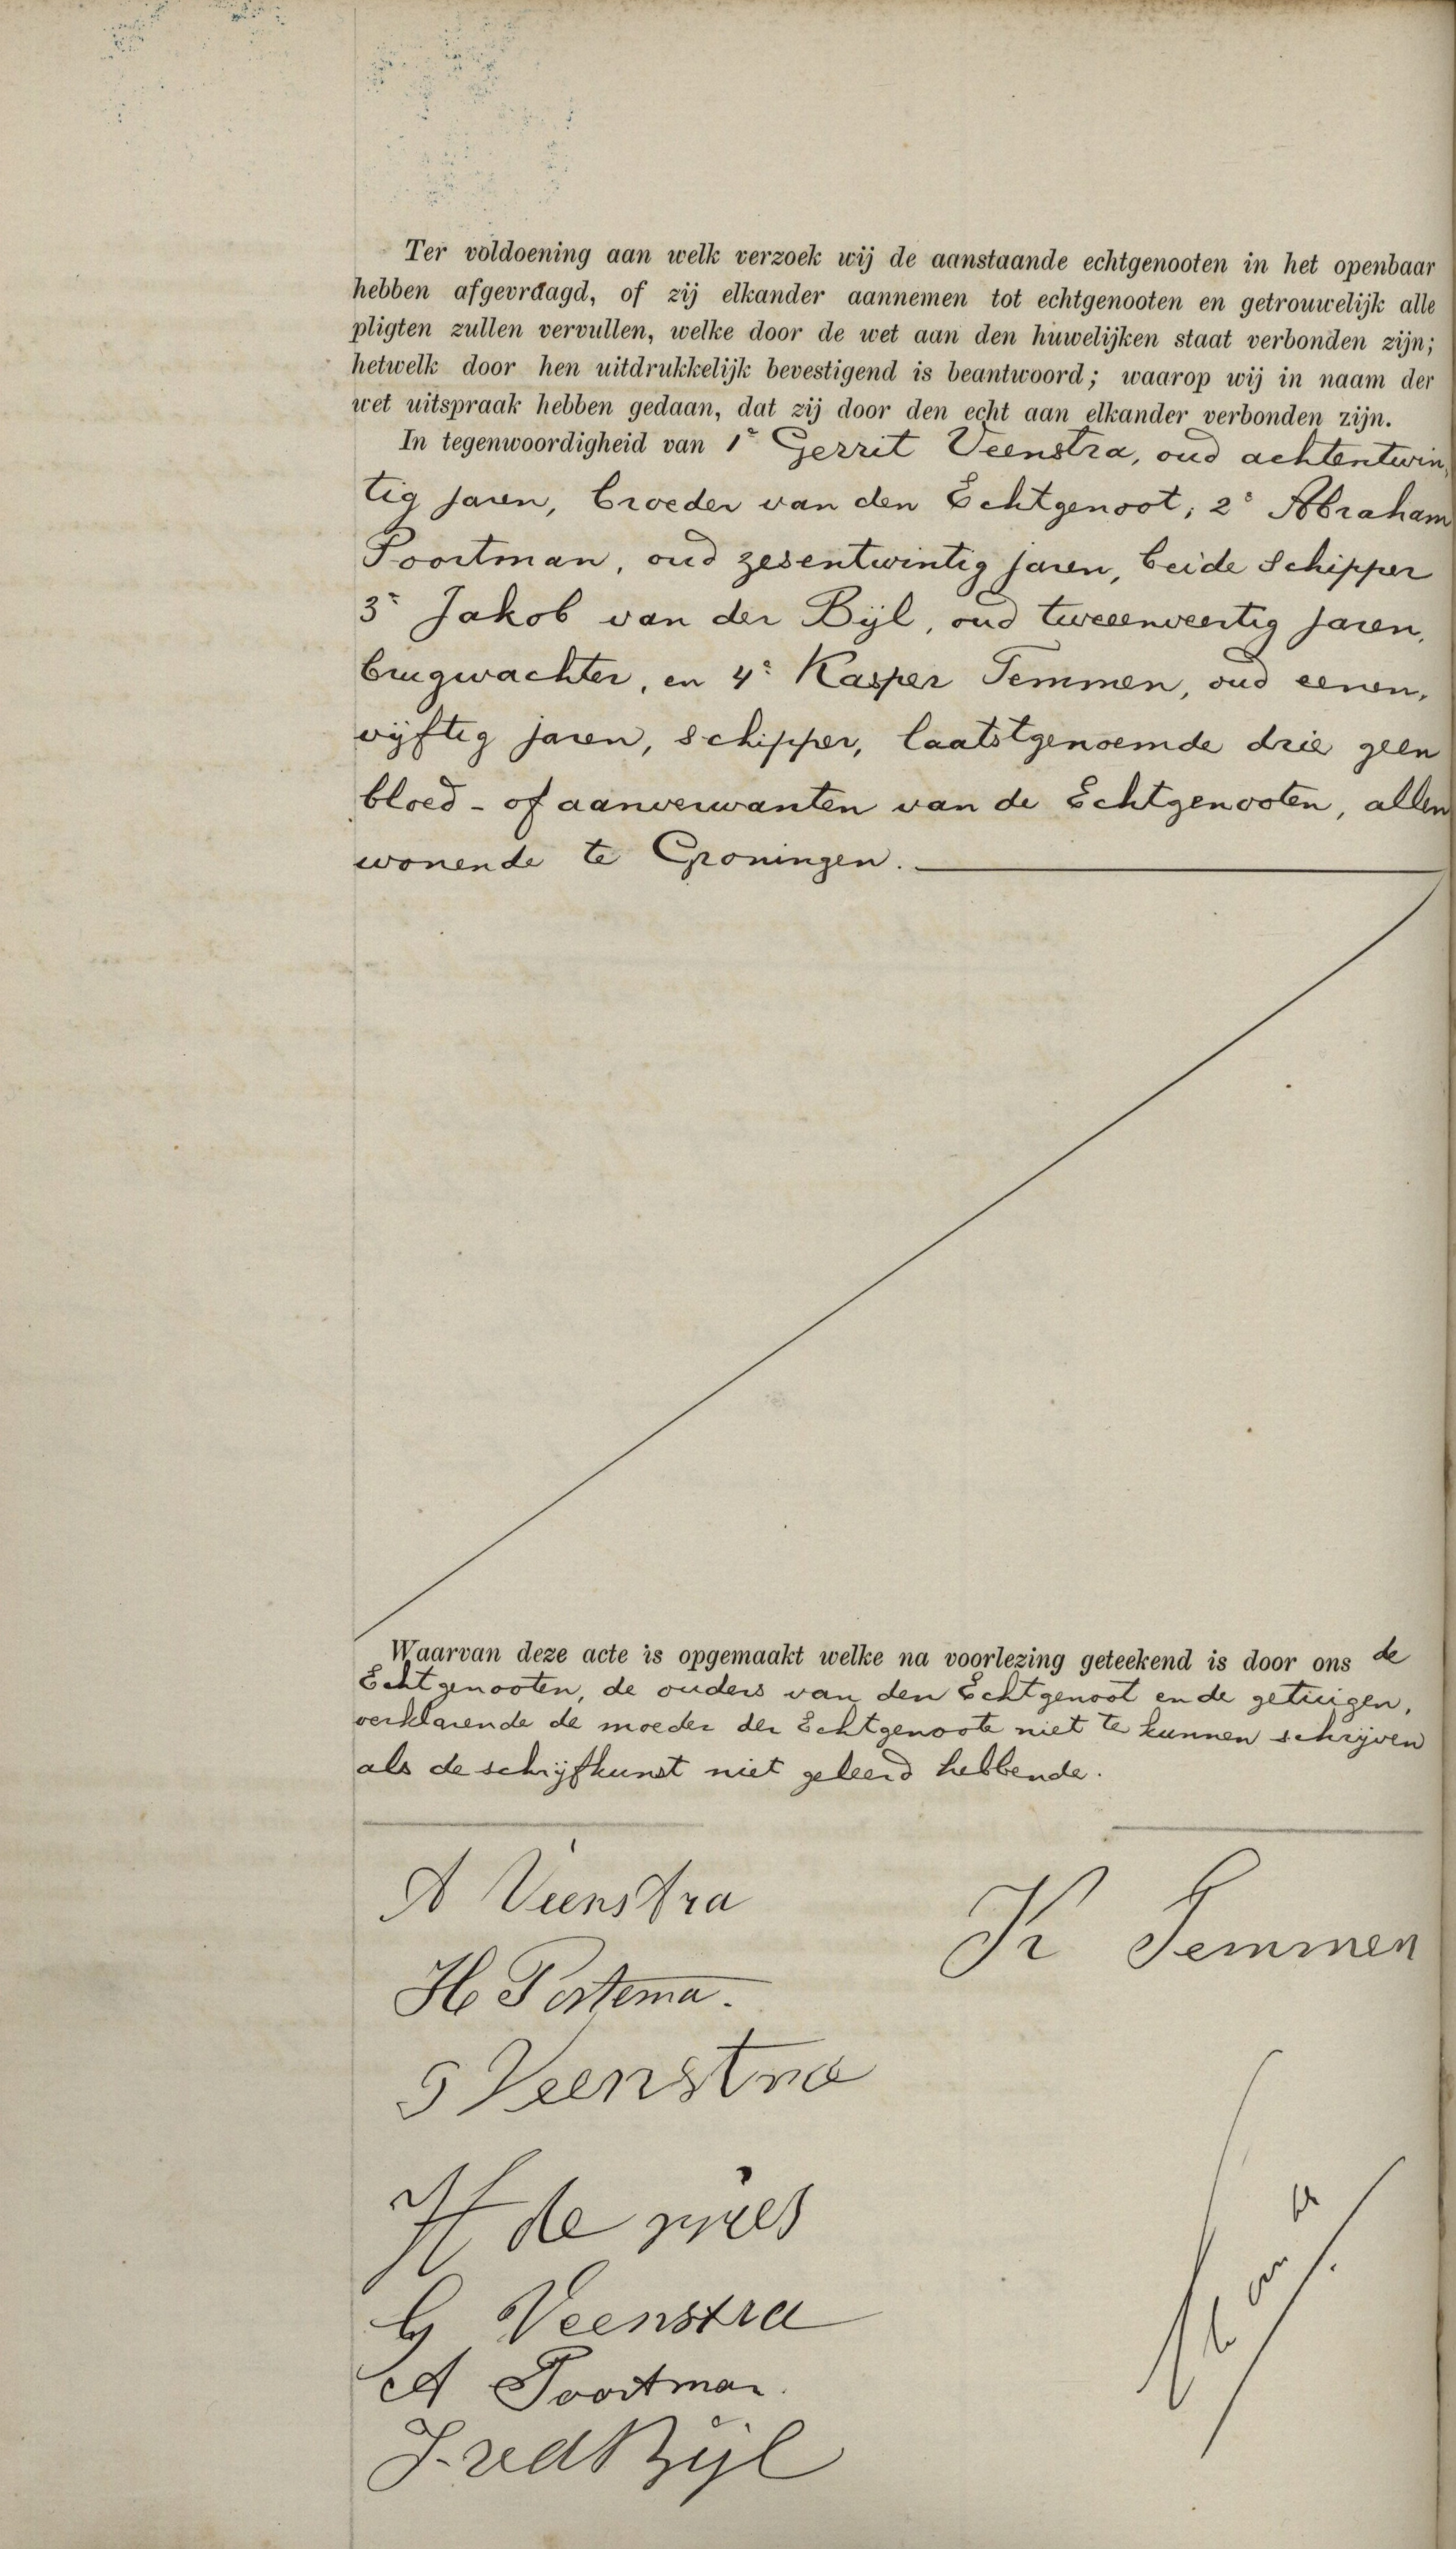 Ter voldoening aan welk verzoek wij de aanstaande echtgenooten in het openbaar
hebben afgevraagd, of zij elkander aannemen tot echtgenooten en getrouwelijk alle
pligten zullen vervullen, welke door de wet aan den huwelijken staat verbonden zijn;
hetwelk door hen uitdrukkelijk bevestigend is beantwoord; waarop wij in naam der
wet uitspraak hebben gedaan, dat zij door den echt aan elkander verbonden zijn.
In tegenwoordigheid van 1e Gerrit Veenstra, oud achtentwin,
tig jaren, broeder van den Echtgenoot, 2e Abraham
Poortman, oud zesentwintig jaren, beide schipper
3e Jakob van der Bijl, oud tweeenveertig jaren,
brugwachter, en 4e Kasper Temmen, oud eenen,
vijftig jaren, schipper, laatstgenoemde drie geen
bloed- of aanverwanten van de Echtgenooten, allen
wonende te Groningen.
Waarvan deze acte is opgemaakt welke na voorlezing geteekend is door ons de
Echtgenooten, de ouders van den Echtgenoot en de getuigen,
verklarende de moeder der Echtgenoote niet te kunnen schrijven
als de schrijfkunst niet geleerd hebbende.
A Veenstra
K Temmen
H Postema.
G Veenstra
H de vries
G Veenstra
A Poortman.
J. vd Bijl